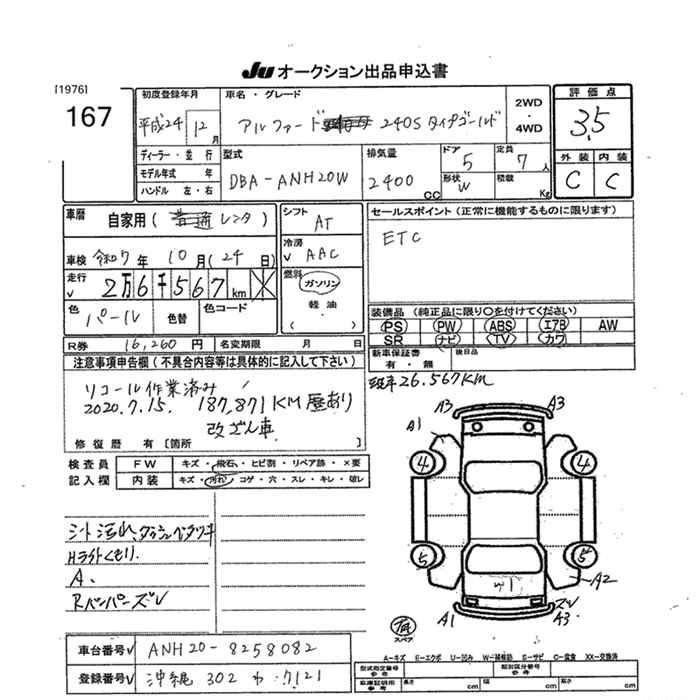 JU オークション出品申込書
[1976]
167
初度登録年月
平成24 12月
車名・グレード
アルファード 240S タイプゴールド
2WD
・
4WD
評価点
3.5
ディーラー・並行
モデル年式 年
ハンドル 左・右
型式
DBA-ANH20W
排気量
2400 CC
ドア
5
形状
W
定員
7人
積載
Kg
外装 内装
C C
車歴
自家用(普通 レンタ)
シフト
AT
セールスポイント(正常に機能するものに限ります)
ETC
車検 令和7年10月(24日)
冷房
AAC
走行
2万6千567km
燃料
ガソリン
軽油
( )
色
パール
色替
色コード
装備品(純正品に限り○を付けてください)
PS PW ABS エアB AW
SR ナビ TV カワ
R券 16,260円 名変期限 月 日
新車保証書
有・無
後日品
注意事項申告欄(不具合内容等は具体的に記入して下さい)
リコール作業済み
2020.7.15. 187,871KM歴あり
改ざん車
修復歴 有[箇所
現車26.567KM
検査員
記入欄
FW キズ・飛石・ヒビ割・リペア跡・×要
内装 キズ・汚れ・コゲ・穴・スレ・キレ・破レ
シート汚れ、ダッシュベタツキ
Hライトくもり.
A.
Rバンパーズレ
A3 A3
A1
4 4
5 5
W1
A2
A1
ズレ
A3
スペア
車台番号 ANH20-8258082
登録番号 沖縄 302 わ 7121
A-キズ E-エクボ U-凹み W-補修跡 S-サビ C-腐食 XX-交換済
型式指定番号
参考
類別区分番号
参考
車庫証明用
参考
長さ cm
幅 cm
高さ cm